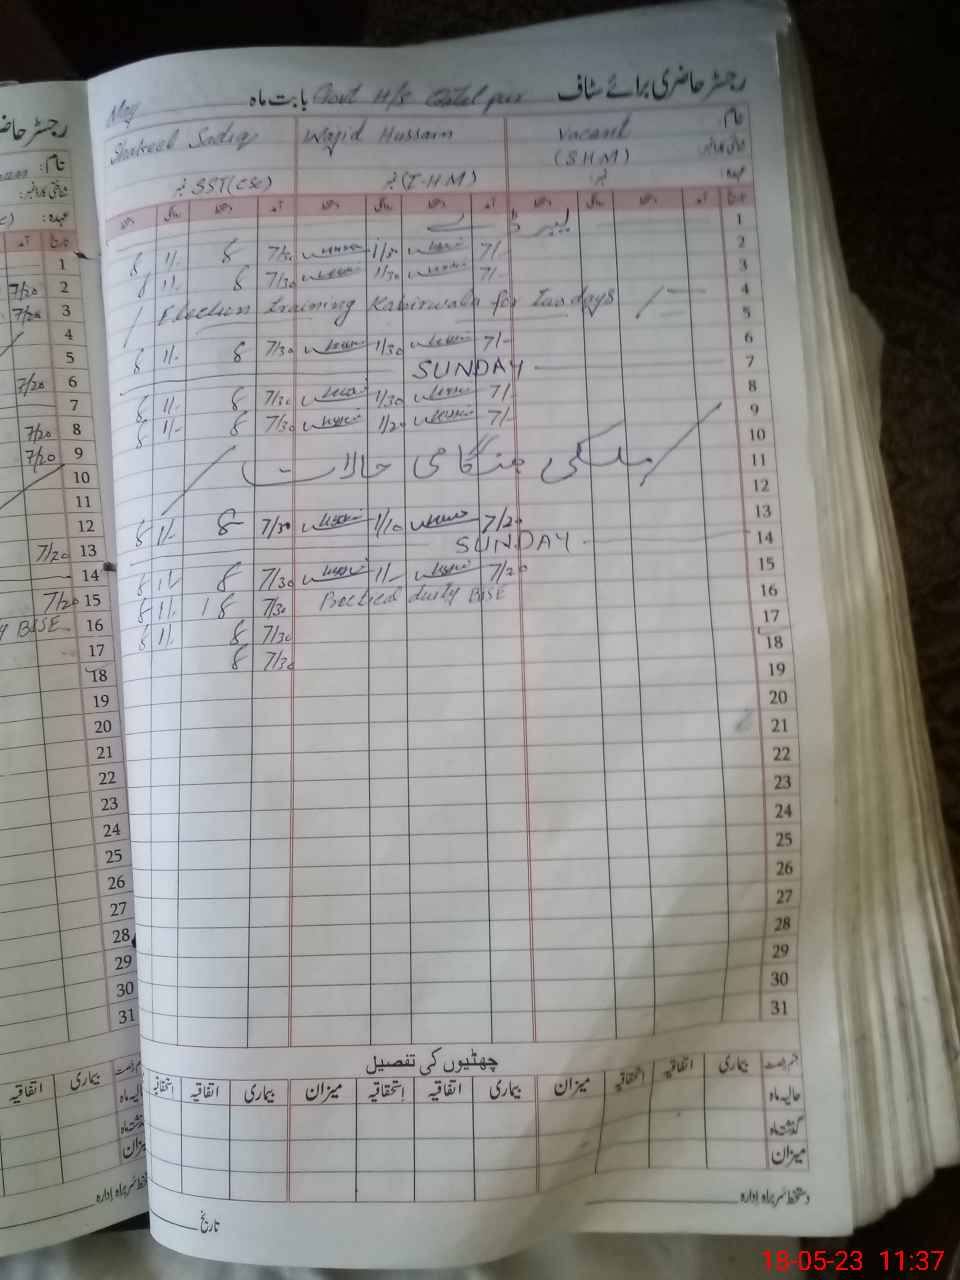 رجسٹر حاضری برائے سٹاف Govt H/S بابت ماہ May
نام:
Vacant Wajid Hussain Shakeel Sadiq
(S.H.M) (I-H.M) نمبر SST(CSc) نمبر
عہدہ:
تاریخ آمد دستخط روانگی دستخط آمد دستخط روانگی دستخط آمد دستخط روانگی دستخط
1
2 7/- 1/30 7/30 8 1/- 8
3 7/- 1/30 7/30 8 1/- 8
4 Election training Kabirwala for two days
5
6 7/- 1/30 7/30 8 1/- 8
7 SUNDAY
8 7/- 1/30 7/30 8 1/- 8
9 7/- 1/20 7/30 8 1/- 8
10
11 ملکی ہنگامی حالات
12
13 7/20 1/10 7/30 8 1/- 8
14 SUNDAY
15 7/20 1/- 7/30 8 1/- 8
16 Practical duty BISE 7/30 8 1/- 8
17 7/30 8 1/- 8
18 7/30 8
19
20
21
22
23
24
25
26
27
28
29
30
31
چھٹیوں کی تفصیل
بیماری اتفاقیہ استحقاقیہ میزان بیماری اتفاقیہ استحقاقیہ میزان بیماری اتفاقیہ استحقاقیہ
حالیہ ماہ
گذشتہ ماہ
میزان
دستخط سربراہ ادارہ
تاریخ
رجسٹر
نام:
شناختی کارڈ نمبر:
عہدہ:
تاریخ آمد
1
2 7/20
3 7/20
4
5
6 7/20
7
8 7/20
9 7/20
10
11
12
13 7/20
14
15 7/20
16 BISE
17
18
19
20
21
22
23
24
25
26
27
28
29
30
31
بیماری اتفاقیہ
حالیہ ماہ
گذشتہ ماہ
میزان
دستخط سربراہ ادارہ
18-05-23 11:37